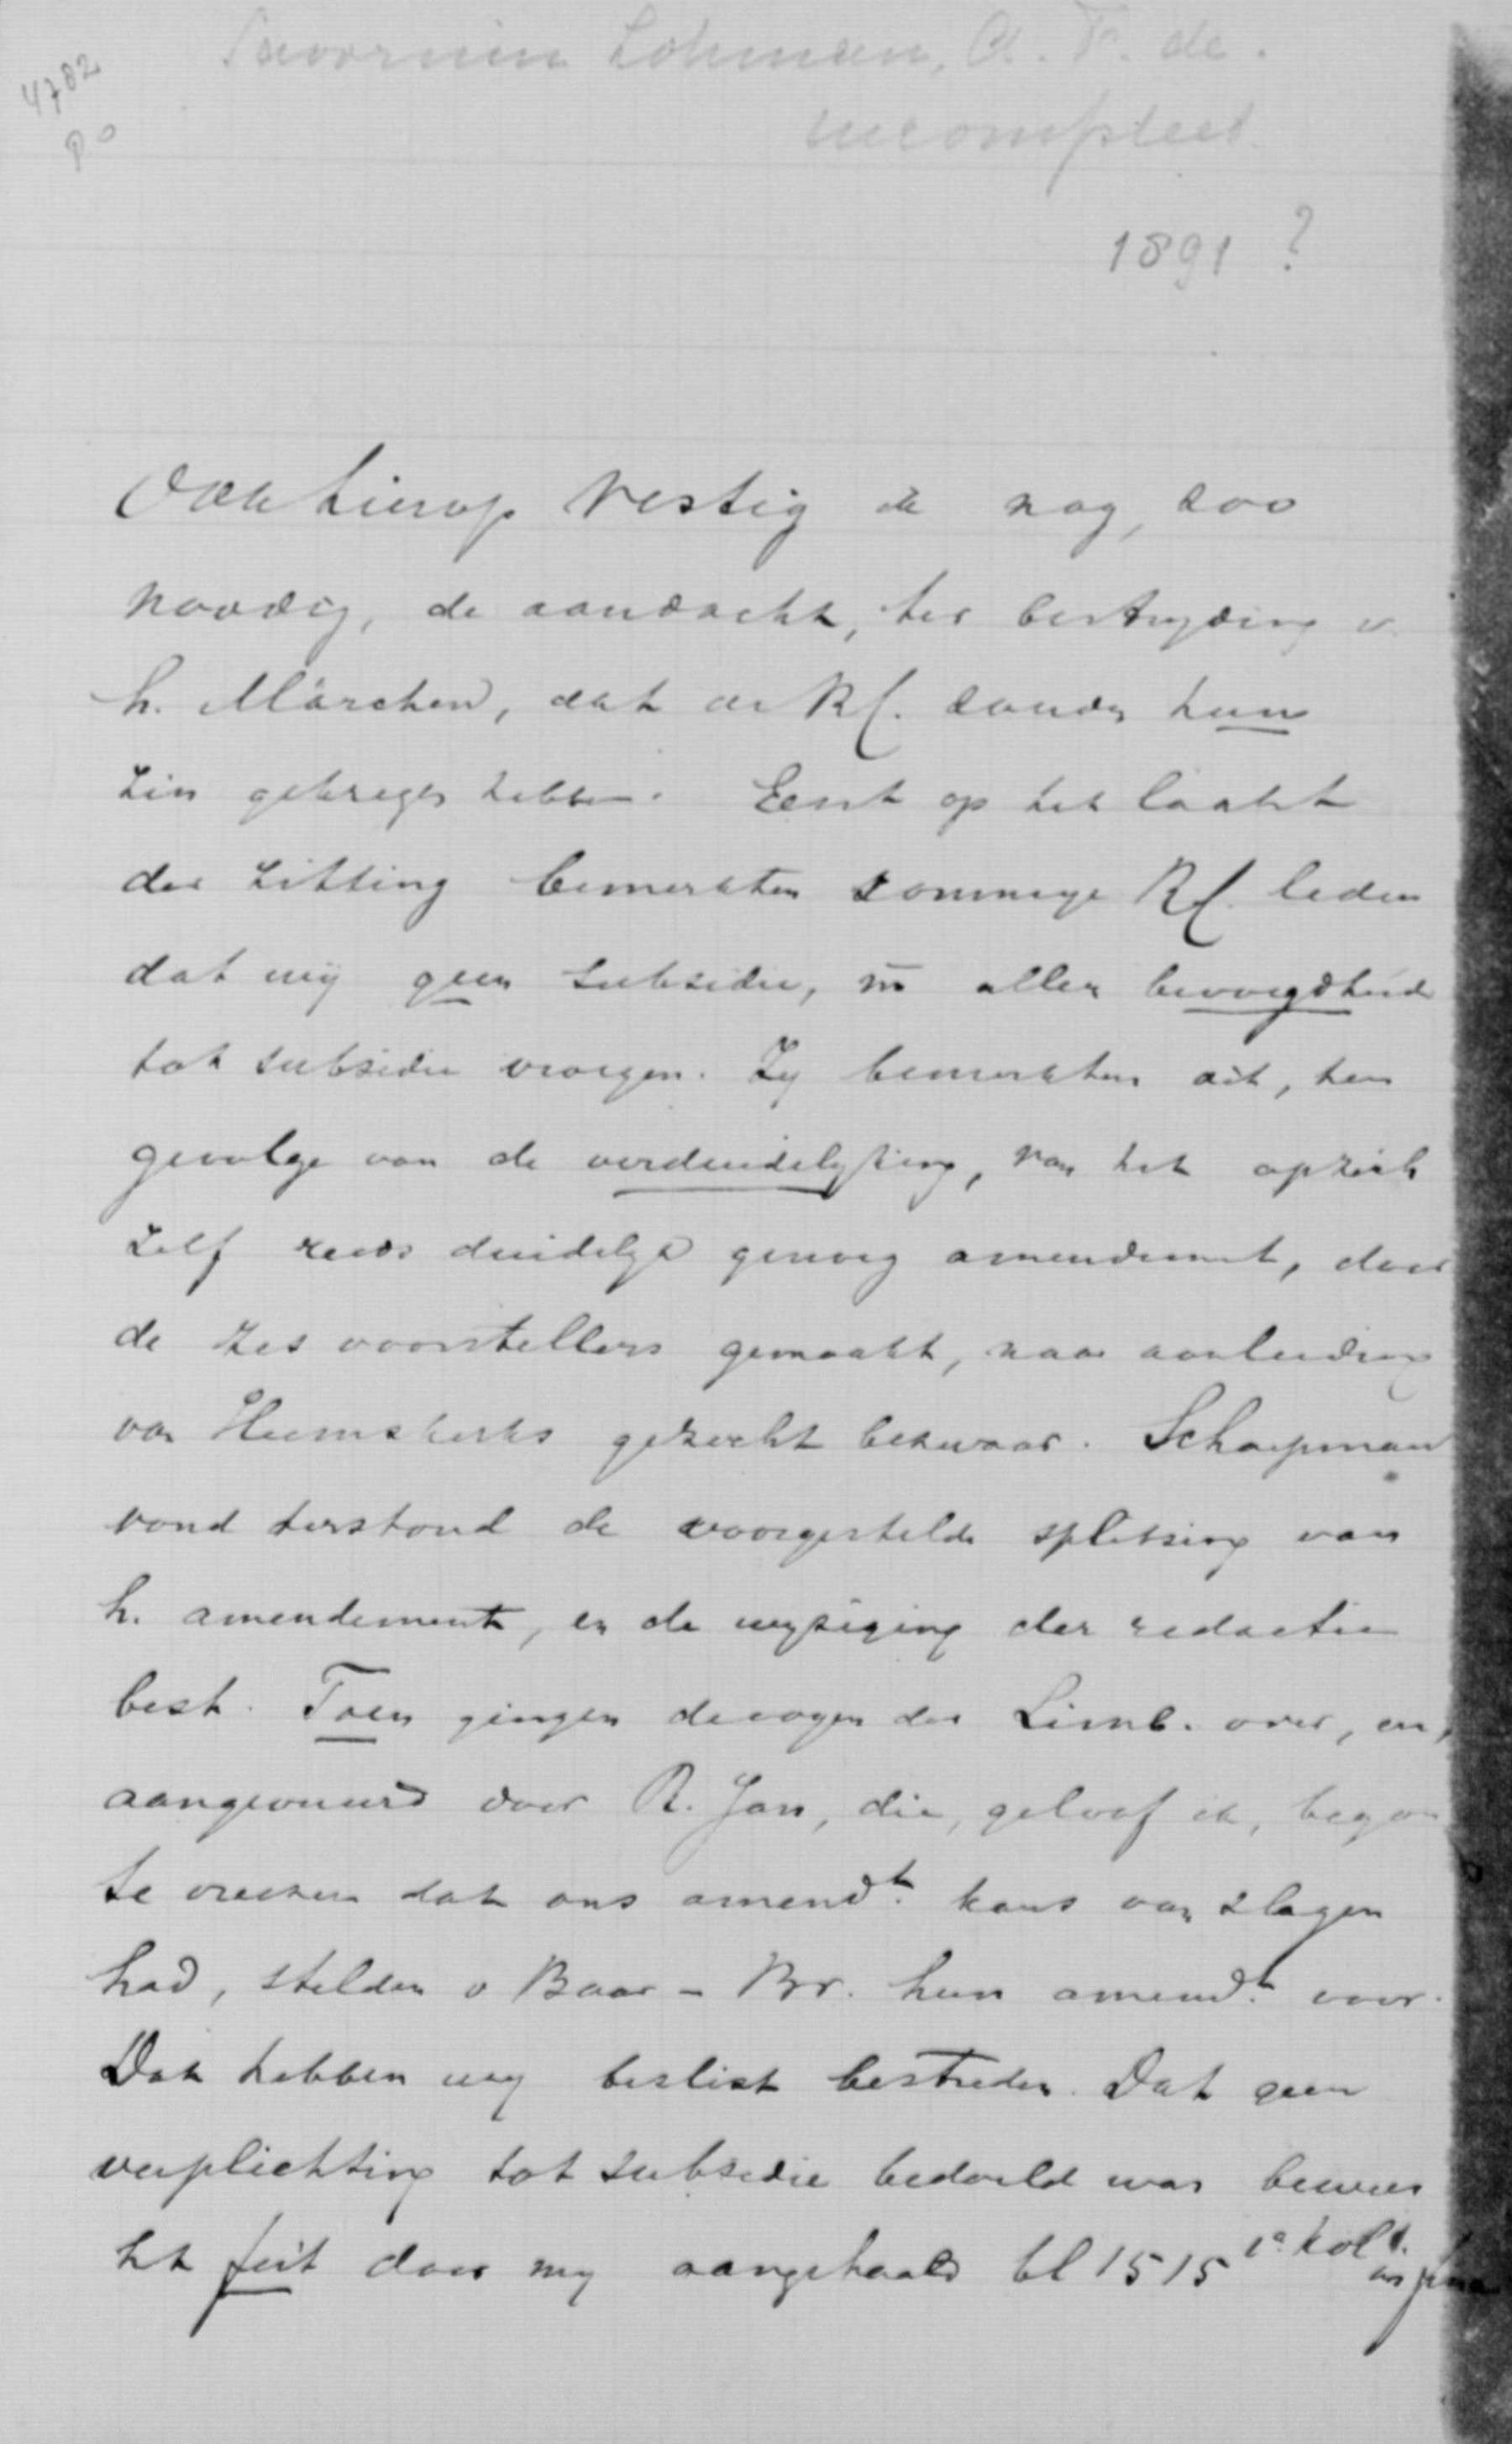 4782
Savornin Lohman, A. F. de.
incompleet
1891 ?
Ook hierop vestig ik nog, zoo
noodig, de aandacht, ter bestryding v.
h. Märchen, dat de RC. zouden hun
zin gekregen hebben. Eerst op het laatst
der zitting bemerkten sommige RC. leden
dat wij geen subsidie, m alleen bevoegdheid
tot subsidie vroegen. Zy bemerkten dit, ten
gevolge van de verduidelyking, van het op zich
zelf reeds duidelyk genoeg amendement, door
de zes voorstellers gemaakt, naar aanleiding
van Heemskerks gezocht bezwaar. Schaepman
vond terstond de voorgestelde splitsing van
h. amendement, en de wyziging der redactie
best. Toen gingen de oogen der Limb. over, en,
aangevuurd door R. Jan, die, geloof ik, begon
te vreezen dat ons amendt. kans van slagen
had, stelden v Baar - Br. hun amendt. voor.
Dat hebben wy beslist bestreden. Dat geen
verplichting tot subsidie bedoeld was bewees
ht feit door my aangehaald bl 1515 1e kol.